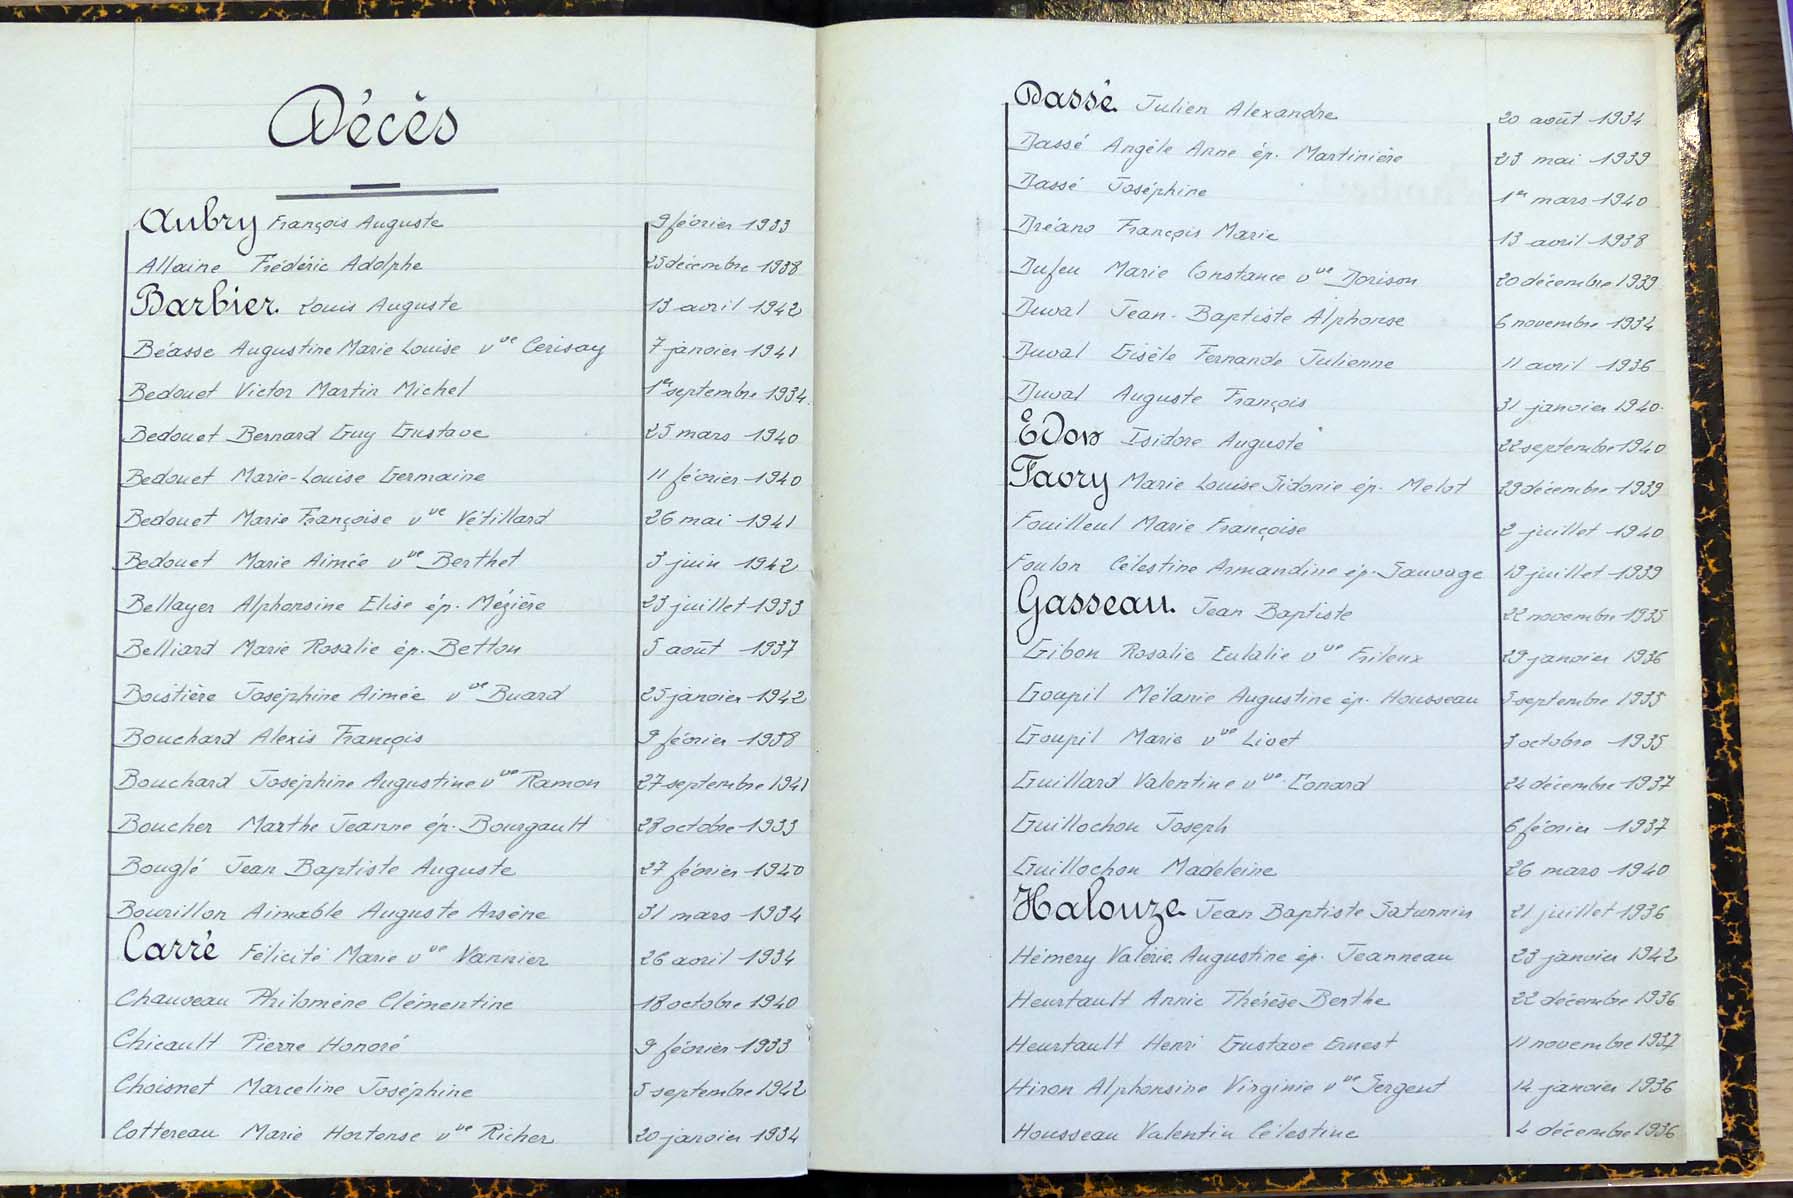 Décès
Aubry François Auguste 9 février 1933
Allaine Frédéric Adolphe 25 décembre 1938
Barbier. Louis Auguste 13 avril 1942
Béasse Augustine Marie Louise vve Cerisay 7 janvier 1941
Bedouet Victor Martin Michel 1er septembre 1934
Bedouet Bernard Guy Gustave 25 mars 1940
Bedouet Marie-Louise Germaine 11 février 1940
Bedouet Marie Françoise vve Vétillard 26 mai 1941
Bedouet Marie Aimée vve Berthet 3 juin 1942
Bellayer Alphonsine Elise ép. Mézière 23 juillet 1933
Belliard Marie Rosalie ép. Betton 5 août 1937
Boistière Joséphine Aimée vve Buard 25 janvier 1942
Bouchard Alexis François 9 février 1938
Bouchard Joséphine Augustine vve Ramon 27 septembre 1941
Boucher Marthe Jeanne ép. Bourgault 28 octobre 1933
Bouglé Jean Baptiste Auguste 27 février 1940
Bourillon Aimable Auguste Arsène 31 mars 1934
Carré Félicité Marie vve Vannier 26 avril 1934
Chauveau Philomène Clémentine 18 octobre 1940
Chicault Pierre Honoré 9 février 1933
Choisnet Marceline Joséphine 5 septembre 1942
Cottereau Marie Hortense vve Richer 20 janvier 1934
Dassé Julien Alexandre 20 août 1934
Dassé Angèle Anne ép. Martinière 23 mai 1939
Dassé Joséphine 1er mars 1940
Dréano François Marie 13 avril 1938
Dufeu Marie Constance vve Dorison 20 décembre 1939
Duval Jean-Baptiste Alphonse 6 novembre 1934
Duval Gisèle Fernande Julienne 11 avril 1936
Duval Auguste François 31 janvier 1940.
Edon Isidore Auguste 22 septembre 1940
Favry Marie Louise Sidonie ép. Melot 29 décembre 1939
Fouilleul Marie Françoise 2 juillet 1940
Foulon Célestine Armandine ép. Sauvage 19 juillet 1939
Gasseau. Jean Baptiste 22 novembre 1935
Gibon Rosalie Eulalie vve Frileux 29 janvier 1936
Goupil Mélanie Augustine ép. Housseau 5 septembre 1935
Goupil Marie vve Livet 3 octobre 1935
Guillard Valentine vve Conard 24 décembre 1937
Guillochon Joseph 6 février 1937
Guillochon Madeleine 26 mars 1940
Halouze Jean Baptiste Saturnin 21 juillet 1936
Hémery Valérie Augustine ép. Jeanneau 23 janvier 1942
Heurtault Annie Thérèse Berthe 22 décembre 1936
Heurtault Henri Gustave Ernest 11 novembre 1937
Hiron Alphonsine Virginie vve Sergent 14 janvier 1936
Housseau Valentin Célestine 4 décembre 1936